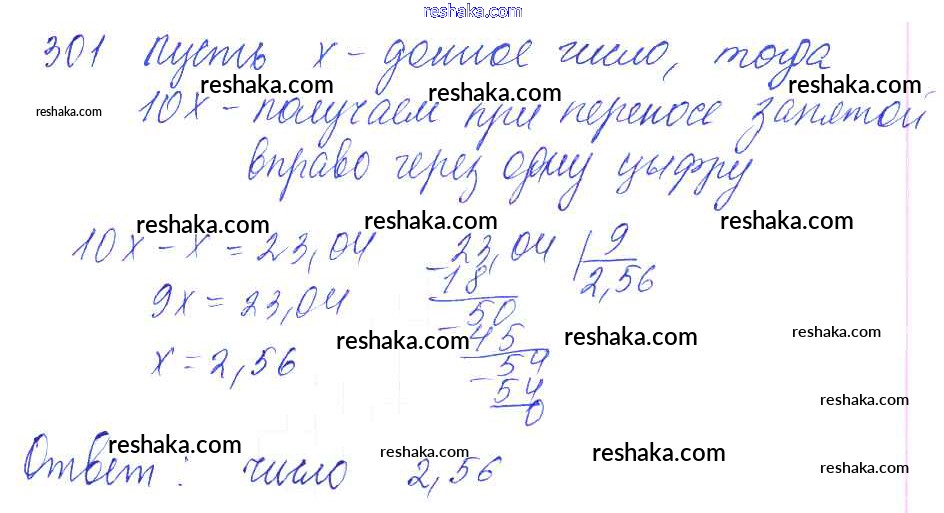 reshaka.com
301 Пусть х - данное число, тогда
reshaka.com reshaka.com reshaka.com reshaka.com
10х - получаем при переносе запятой
вправо через одну цыфру
reshaka.com reshaka.com reshaka.com
10х - х = 23,04
9х = 23,04
х = 2,56
23,04 | 9
- 18 2,56
50
- 45
54
- 54
0
reshaka.com reshaka.com reshaka.com
reshaka.com
reshaka.com reshaka.com reshaka.com
Ответ: число 2,56
reshaka.com